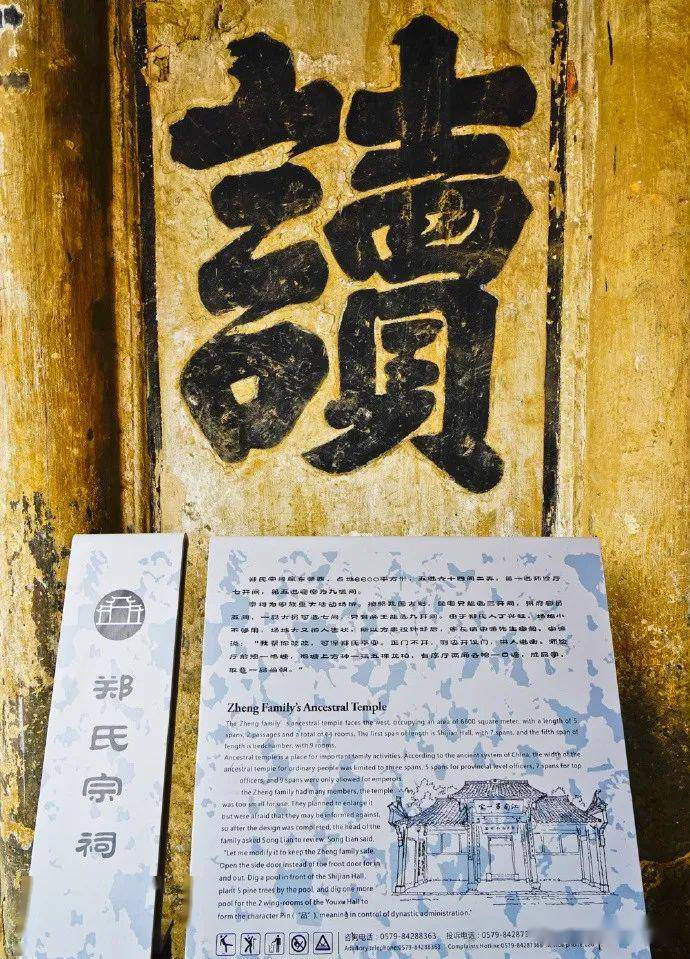 讀
郑氏宗祠
郑氏宗祠座东朝西，占地6600平方米，五进六十四间二弄，第一进师俭厅
七开间，第五进寝室为九间。
宗祠为家族重大活动场所。按照我国古制，民宅只能造三开间，州府官员
五间，一品大员可造七间，只有帝王能造九开间。由于郑氏人丁兴旺，场地小
不够用，场地大又怕人告状，所以方案设计好后，家长请宋濂先生审阅，宋濂
说：“我帮你改改，可保郑氏平安。正门不开，侧边开设门，供人进出，师俭
厅前挖一池塘，池塘上方种一排五棵龙柏，有序厅两厢各挖一口塘，成品字，
取意一品当朝。”
Zheng Family's Ancestral Temple
The Zheng family's ancestral temple faces the west, occupying an area of 6600 square meter, with a length of 5
spans, 2 passages and a total of 64 rooms. The first span of length is Shijian Hall, with 7 spans, and the fifth span of
length is bedchamber, with 9 rooms.
Ancestral temple is a place for important family activities. According to the ancient system of China, the width of the
ancestral temple for ordinary people was limited to three spans, 5 spans for provincial level officers, 7 spans for top
officers, and 9 spans were only allowed for emperor.
the Zheng family had many members, the temple
was too small for use. They planned to enlarge it
but were afraid that they may be informed against,
so after the design was completed, the head of the
family asked Song Lian to review. Song Lian said,
"Let me modify it to keep the Zheng family safe.
Open the side door instead of the front door for in
and out. Dig a pool in front of the Shijian Hall,
plant 5 pine trees by the pool, and dig one more
pool for the 2 wing-rooms of the Youxu Hall to
form the character Pin ("品"), meaning in control of dynastic administration."
咨询电话：0579-84288363 投诉电话：0579-84287
Advisory telephone:0579-84288363 Complaints Hotline:0579-84287368